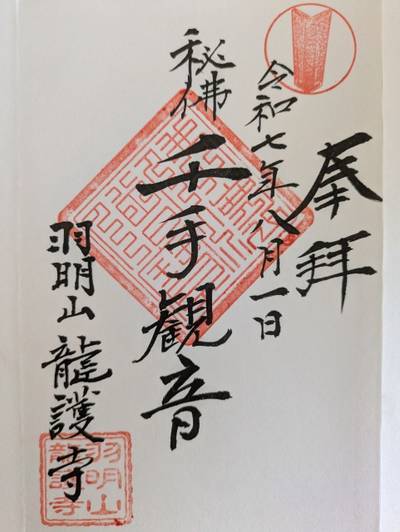 奉拝
令和七年八月一日
秘佛
千手観音
羽明山 龍護寺
羽明山
龍護寺